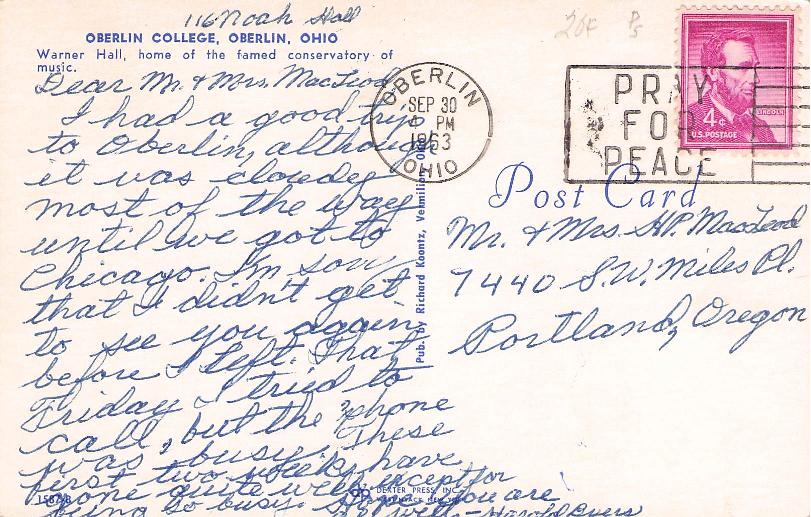 116 Noah Hall
OBERLIN COLLEGE, OBERLIN, OHIO
Warner Hall, home of the famed conservatory of
music.
Dear Mr. & Mrs. MacLeod
I had a good trip
to Oberlin, although
it was cloudy
most of the way
until we got to
Chicago. I'm sorry
that I didn't get
to see you again
before I left. That
Friday I tried to
call, but the 'phone
was busy. These
first two weeks have
gone quite well except for
being so busy. Hope you are
well, - Harold Evers
15878-B
DEXTER PRESS, INC.
WEST NYACK, NEW YORK
Pub. by Richard Koontz, Vermilion, Ohio
OBERLIN
SEP 30
4 PM
1963
OHIO
PRAY
FOR
PEACE
LINCOLN
4¢
U.S. POSTAGE
20¢
Post Card
Mr. & Mrs. H.P. MacLeod
7440 S.W. Miles Pl.
Portland, Oregon